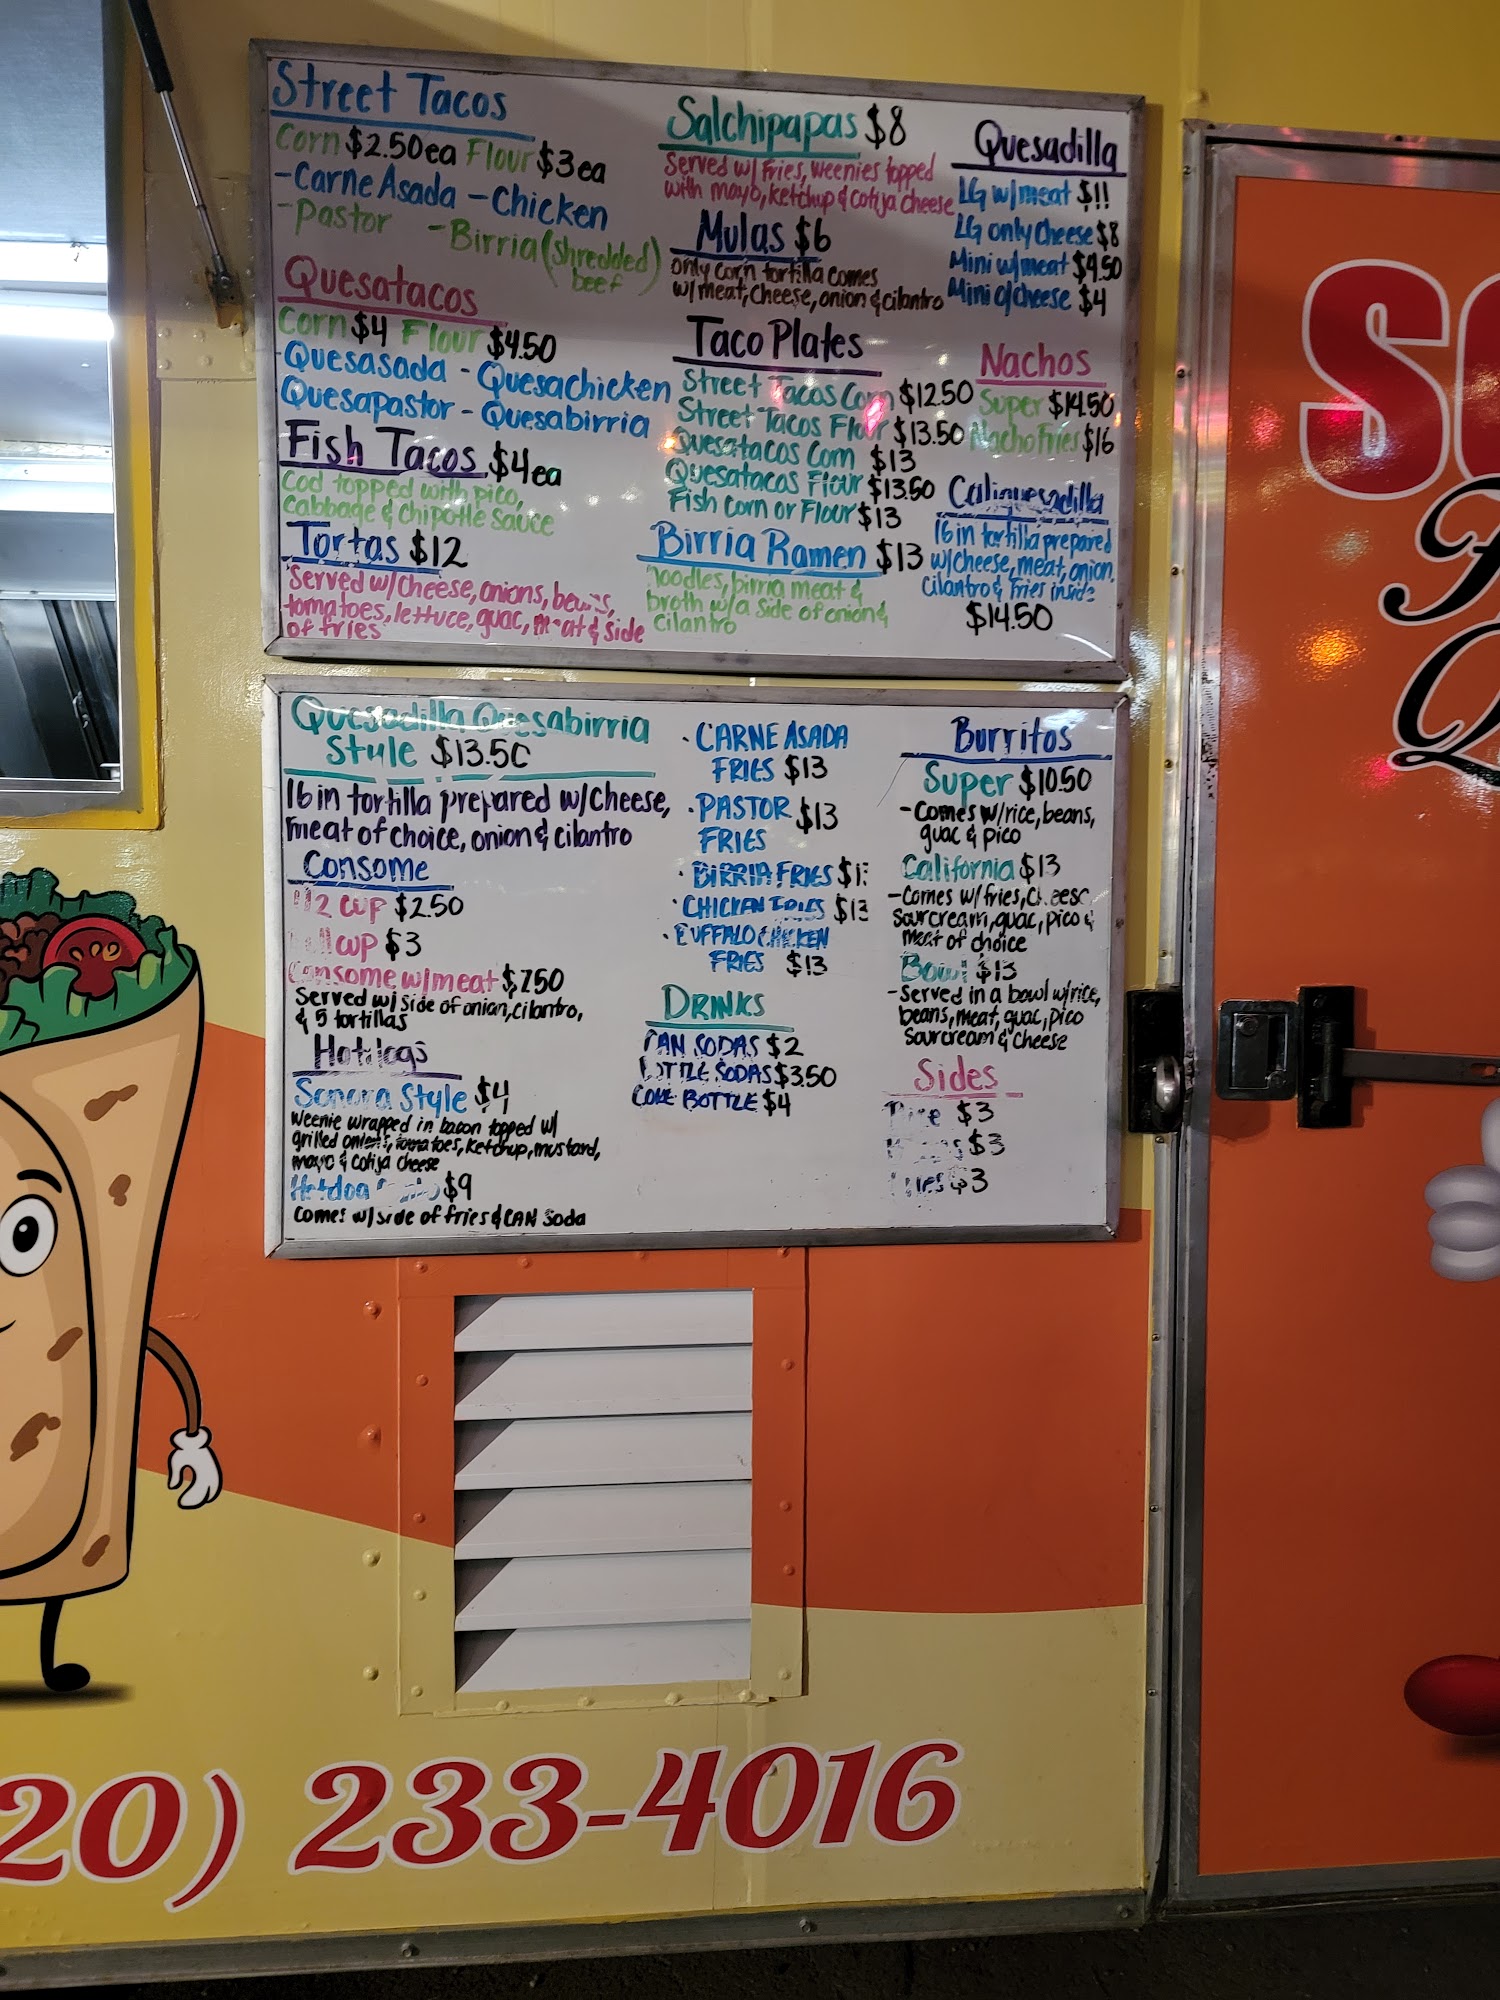 Street Tacos
Corn $2.50ea Flour $3ea
-Carne Asada -Chicken
-Pastor -Birria (shredded)
beef
Quesatacos
Corn $4 Flour $4.50
-Quesasada -Quesachicken
Quesapastor -Quesabirria
Fish Tacos $4ea
Cod topped with pico,
cabbage & Chipotle Sauce
Tortas $12
Served w/Cheese, onions, beans,
tomatoes, lettuce, guac, meat & side
of fries
Salchipapas $8
Served w/ Fries, weenies topped
with mayo, ketchup & cotija cheese
Mulas $6
only corn tortilla comes
w/meat, Cheese, onion & cilantro
Taco Plates
Street Tacos Corn $12.50
Street Tacos Flour $13.50
Quesatacos Corn $13
Quesatacos Flour $13.50
Fish Corn or Flour $13
Birria Ramen $13
noodles, birria meat &
broth w/a side of onion &
cilantro
Quesadilla
LG w/meat $11
LG only Cheese $8
Mini w/meat $4.50
Mini o/cheese $4
Nachos
Super $14.50
Nacho Fries $16
Caliquesadilla
16 in tortilla prepared
w/Cheese, meat, onion,
cilantro & fries inside
$14.50
Quesadilla Quesabirria
Style $13.50
16 in tortilla prepared w/Cheese,
meat of choice, onion & cilantro
Consome
1/2 cup $2.50
cup $3
Consome w/meat $7.50
Served w/ side of onion, cilantro,
& 5 tortillas
Hotdogs
Sonora Style $4
Weenie wrapped in bacon topped w/
grilled onions, tomatoes, ketchup, mustard,
mayo & cotija cheese
Hotdog $9
Comes w/side of fries & CAN Soda
· CARNE ASADA
FRIES $13
· PASTOR $13
FRIES
· BIRRIA FRIES
· CHICKEN FRIES $13
· BUFFALO CHICKEN
FRIES $13
DRINKS
CAN SODAS $2
BOTTLE SODAS $3.50
COKE BOTTLE $4
Burritos
Super $10.50
-Comes w/rice, beans,
guac & pico
California $13
-Comes w/fries, Cheese,
Sourcream, guac, pico &
meat of choice
Bowl $13
-Served in a bowl w/rice,
beans, meat, guac, pico
Sourcream & cheese
Sides
Rice $3
$3
Fries $3
20) 233-4016